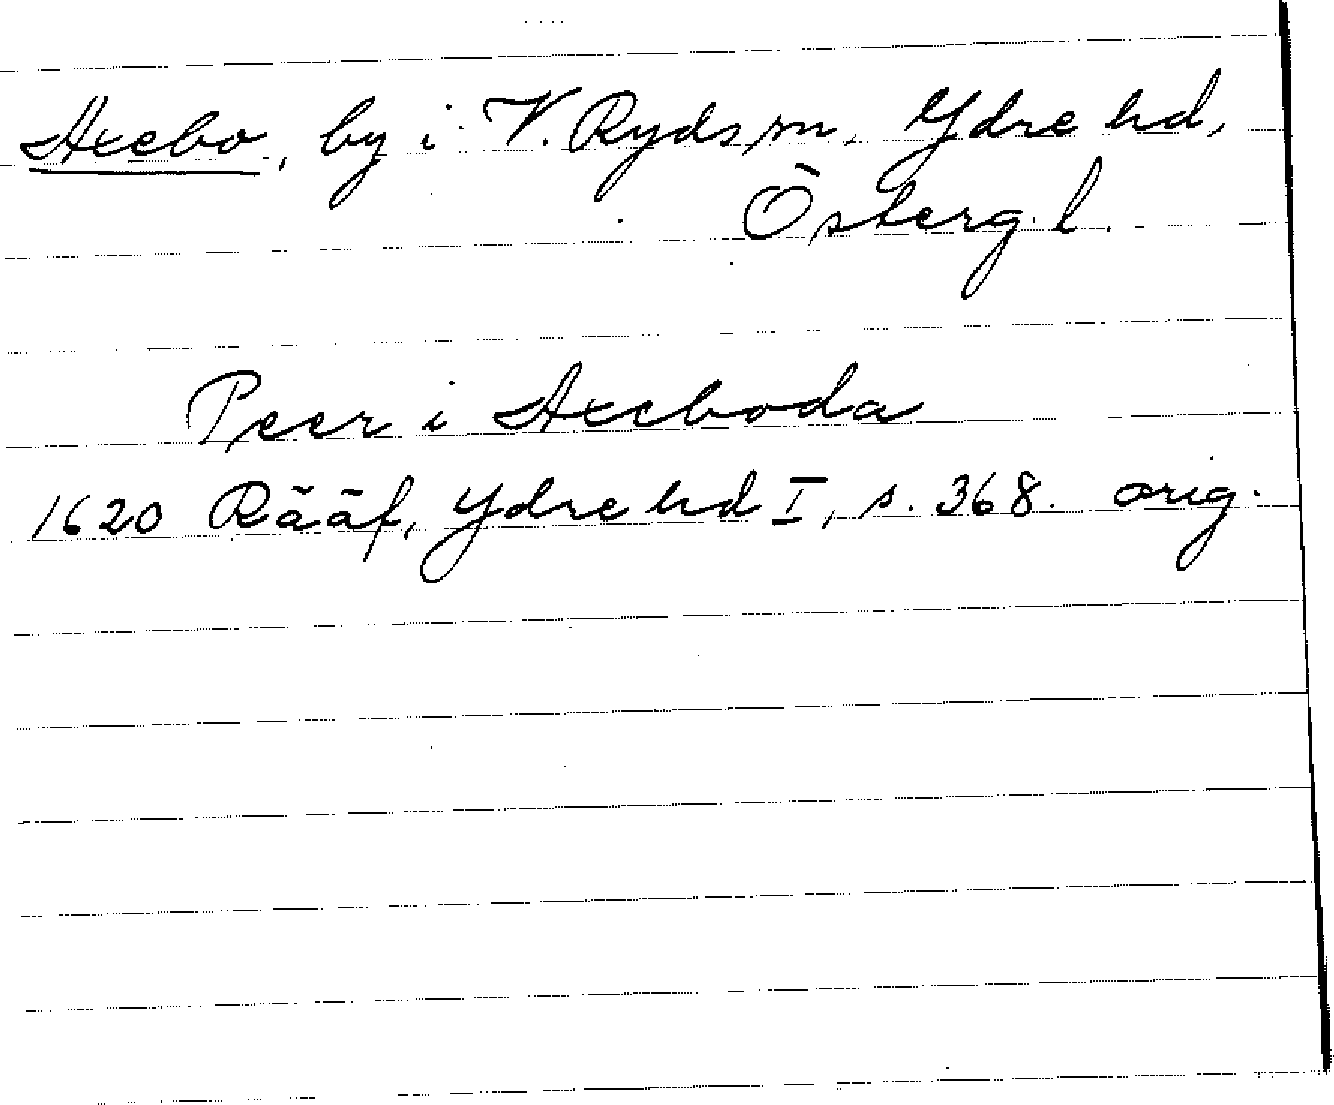 Axebo, by i V. Ryds sn, Ydre hd,
Österg. l.
Peer i Axeboda
1620 Rääf, Ydre hd I, s. 368. orig.